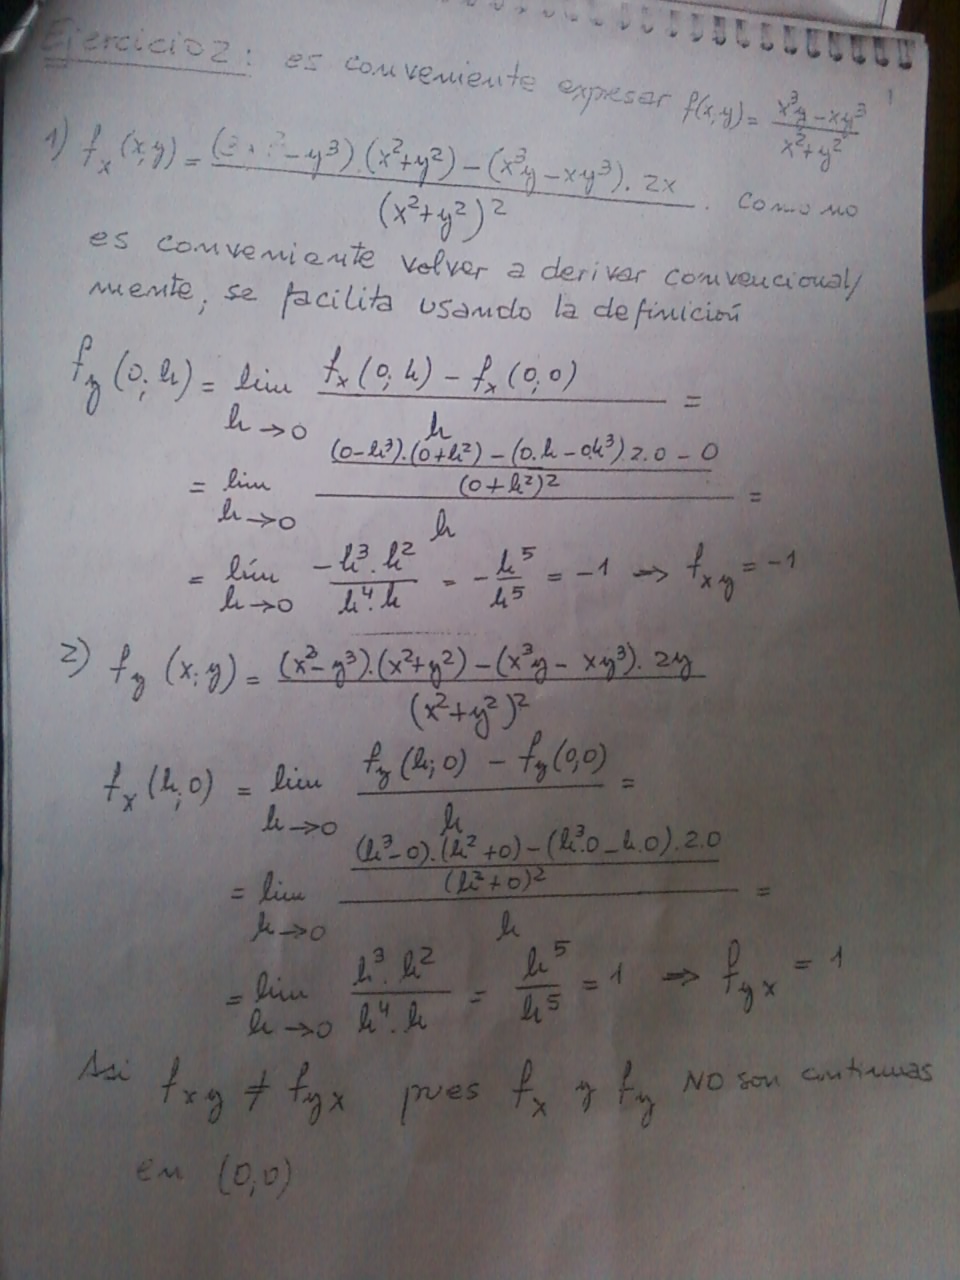 Ejercicio 2: es conveniente expresar f(x,y) = (x³y - xy³)/(x²+y²)
1) f_x (x;y) = ((3x² - y³).(x²+y²) - (x³y - xy³). 2x)/(x²+y²)². Como no
es conveniente volver a derivar convencional/
mente, se facilita usando la definición
f_y (0;h) = lim h→0 (f_x (0;h) - f_x (0;0))/h =
= lim h→0 (((0-h³).(0+h²) - (0.h - 0.h³).2.0 - 0)/(0+h²)²)/h =
= lím h→0 (-h³.h²)/(h⁴.h) = - h⁵/h⁵ = -1 → f_xy = -1
2) f_y (x;y) = ((x³-y³).(x²+y²) - (x³y - xy³). 2y)/(x²+y²)²
f_x (h;0) = lim h→0 (f_y (h;0) - f_y (0,0))/h =
= lim h→0 (((h³-0).(h²+0) - (h³.0 - h.0).2.0)/(h²+0)²)/h =
= lim h→0 (h³.h²)/(h⁴.h) = h⁵/h⁵ = 1 → f_yx = 1
Asi f_xy ≠ f_yx pues f_x y f_y NO son continuas
en (0,0)